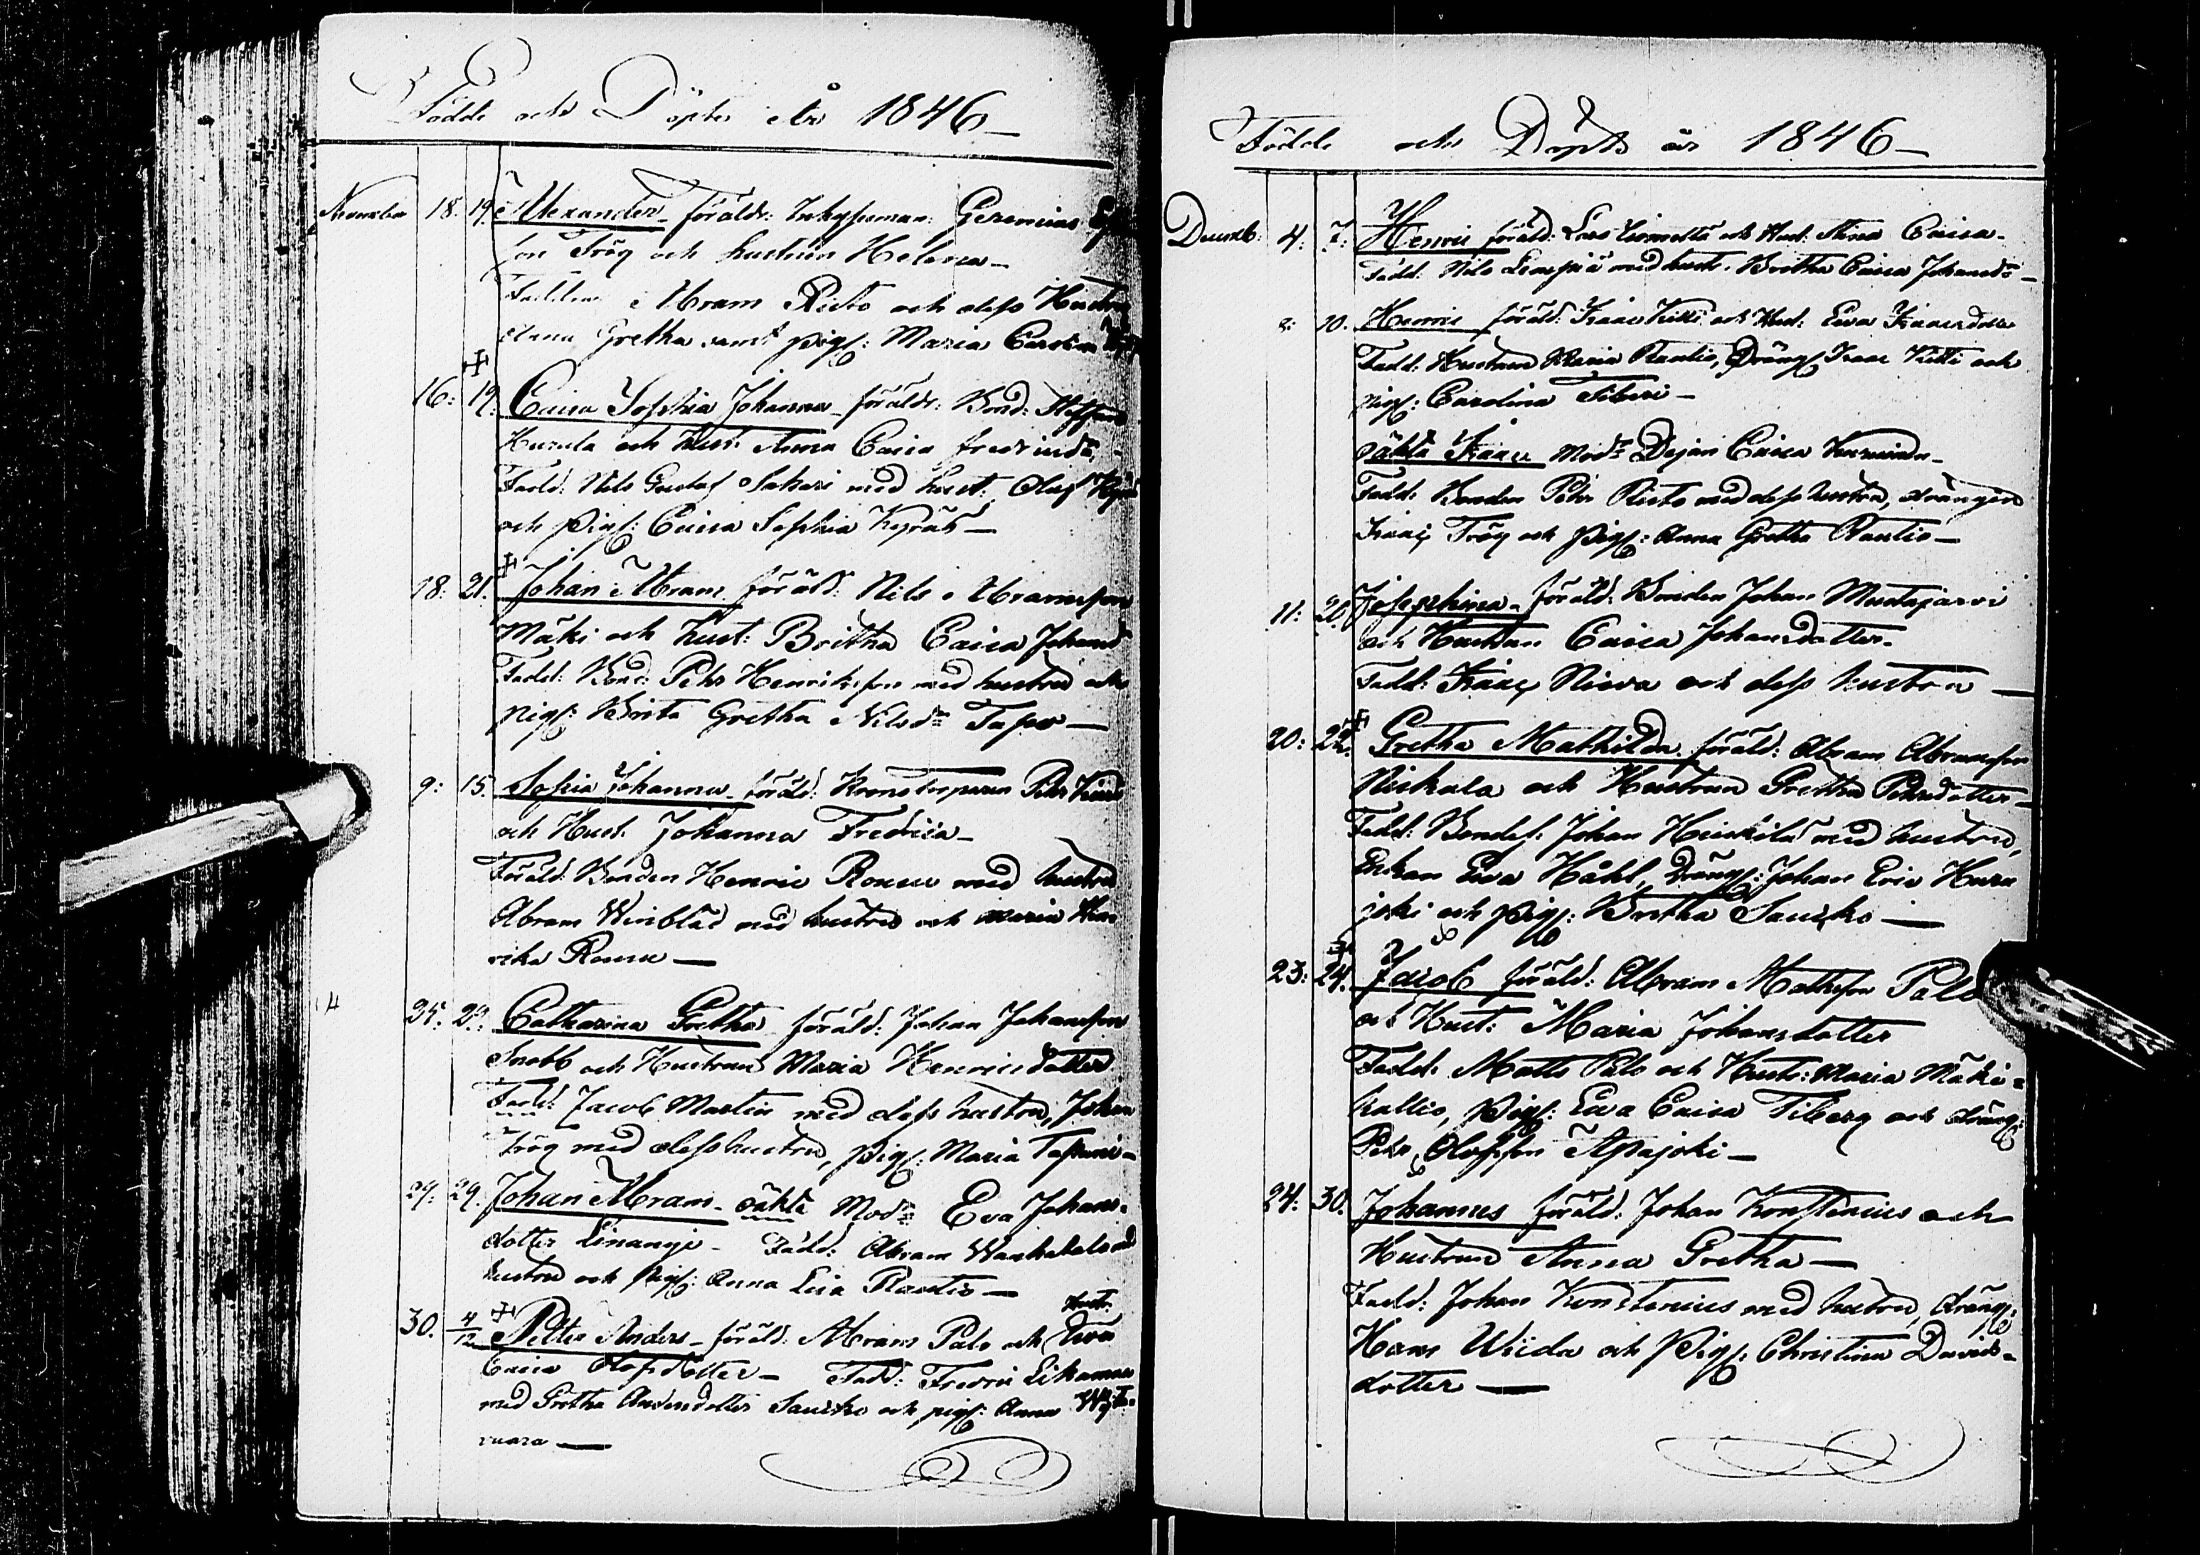 Födde och Döpte År 1846
Novemb: 18. 19. Alexander föräldr: Inhysesman: Geremias
son Fröy och hustrun Helena
Faddr: Abram Risto och dess Hustru
Anna Gretha samt pig: Maria Carolina
16: 19. Caisa Sophia Johanna föräldr: Bond: Staffan
Hurula och hust: Anna Caisa
Fadd: Nils Gustaf med hust: Olof
och Pig: Caisa Sophia Kyrö
18: 21. Johan Abram föräld: Nils Abramsson
Mäki och hust: Britha Caisa Johansd
Fadd: Bond: Pehr Henriksson med hustru och
pig: Brita Gretha Nilsdr Tapio
9: 15. Sofia Johanna föräld: Pehr
och Hust: Johanna Fredrica
Föräld: Bonden Henric Rousu med hustru
Abram Winblad med hustru och Maria Hen
rika Rousu
25: 29. Catharina Gretha föräld: Johan Johansson
Snobb och Hustrun Maria Henricsdotter
Fadd: Jacob Martin med dess hustru, Johan
Fröy med dess hustru, pig: Maria Tapani
29: 29. Johan Abram oäkta Modr Eva Johans
dotter Linangi Fadd: Abram med
hustru och pig: Anna Lisa Rautio
30. 4/12 Petter Anders föräld: Abram Palo och hustr: Eva
Caisa Olofsdotter Fadd: Fredric
med Gretha Andersdotter Saucko och pig: Anna
vaara
Födde och Döpte år 1846
Decemb: 4. 7. Henric föräld: Lars och Hust: Anna Caisa
Fadd: Nils Lempiä med hust: Britha Caisa Johansdr
8: 10. Henric föräld: Isaac Kitti och Hust: Ewa Isaacsdotter
Fadd: Hustrun Maria Rautio, Dräng Isaac Kitti och
pig: Carolina Tiberi
oäkta Isaac Modr Dejan Caisa
Fadd: Bonden Pehr Risto med dess hustru, drängen
Isaac Fröy och Pig: Anna Gretha Rautio
11: 20. Josephina föräld: Bonden Johan Mustajärvi
och Hustrun Caisa Johansdotter
Fadd: Isaac Niva och dess hustru
20: 22. Gretha Mathilda föräld: Abram Abramsson
Niskala och Hustrun Gretha Pehrsdotter
Fadd: Bondes: Johan Heikkilä med hustru,
Enkan Ewa Håhl, Dräng: Johan Eric Kura
joki och pig: Britha Saucko
23: 24. Jacob föräld: Abram Mathsson Palo
och Hust: Maria Johansdotter
Fadd: Matts Palo och Hust: Maria Mäki
kallio, Pig: Ewa Caisa Tiberg och dräng:
Pehr Olofsson Apajoki
24: 30. Johannes föräld: Johan Konstenius och
Hustrun Anna Gretha
Fadd: Johan Konstenius med hustru, dräng:
Hans Wiida och Pig: Christina Davids
dotter